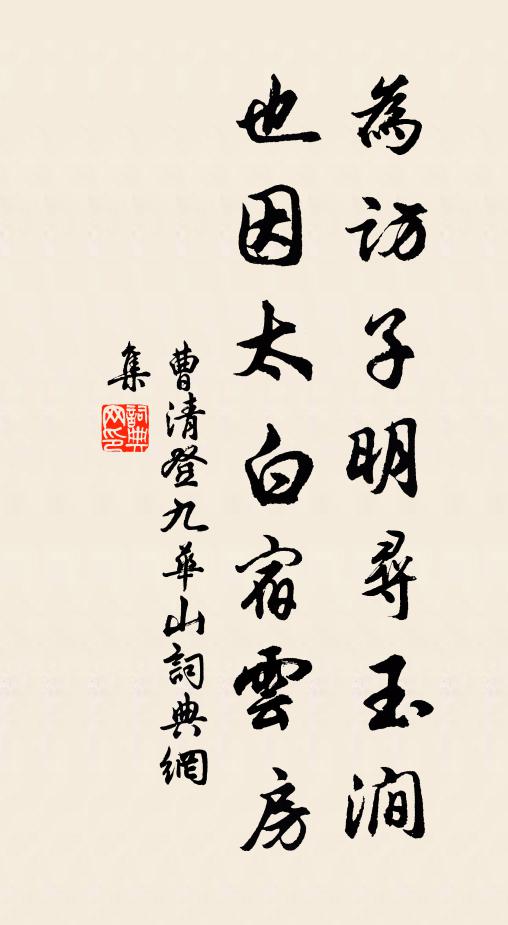 為訪子明尋玉澗
也因太白宿雲房
曹清登九華山詞典網
集
詞典
网印